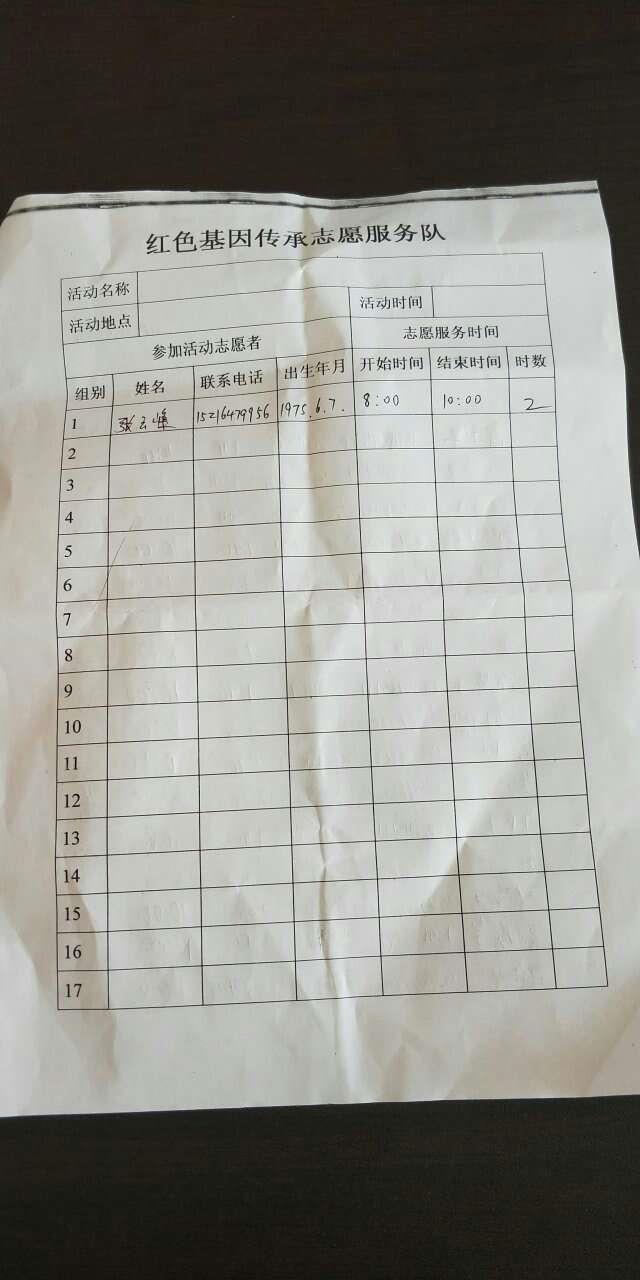 红色基因传承志愿服务队
活动名称
活动地点 活动时间
参加活动志愿者 志愿服务时间
组别 姓名 联系电话 出生年月 开始时间 结束时间 时数
1 张云峰 15216479956 1975.6.7. 8:00 10:00 2
2
3
4
5
6
7
8
9
10
11
12
13
14
15
16
17